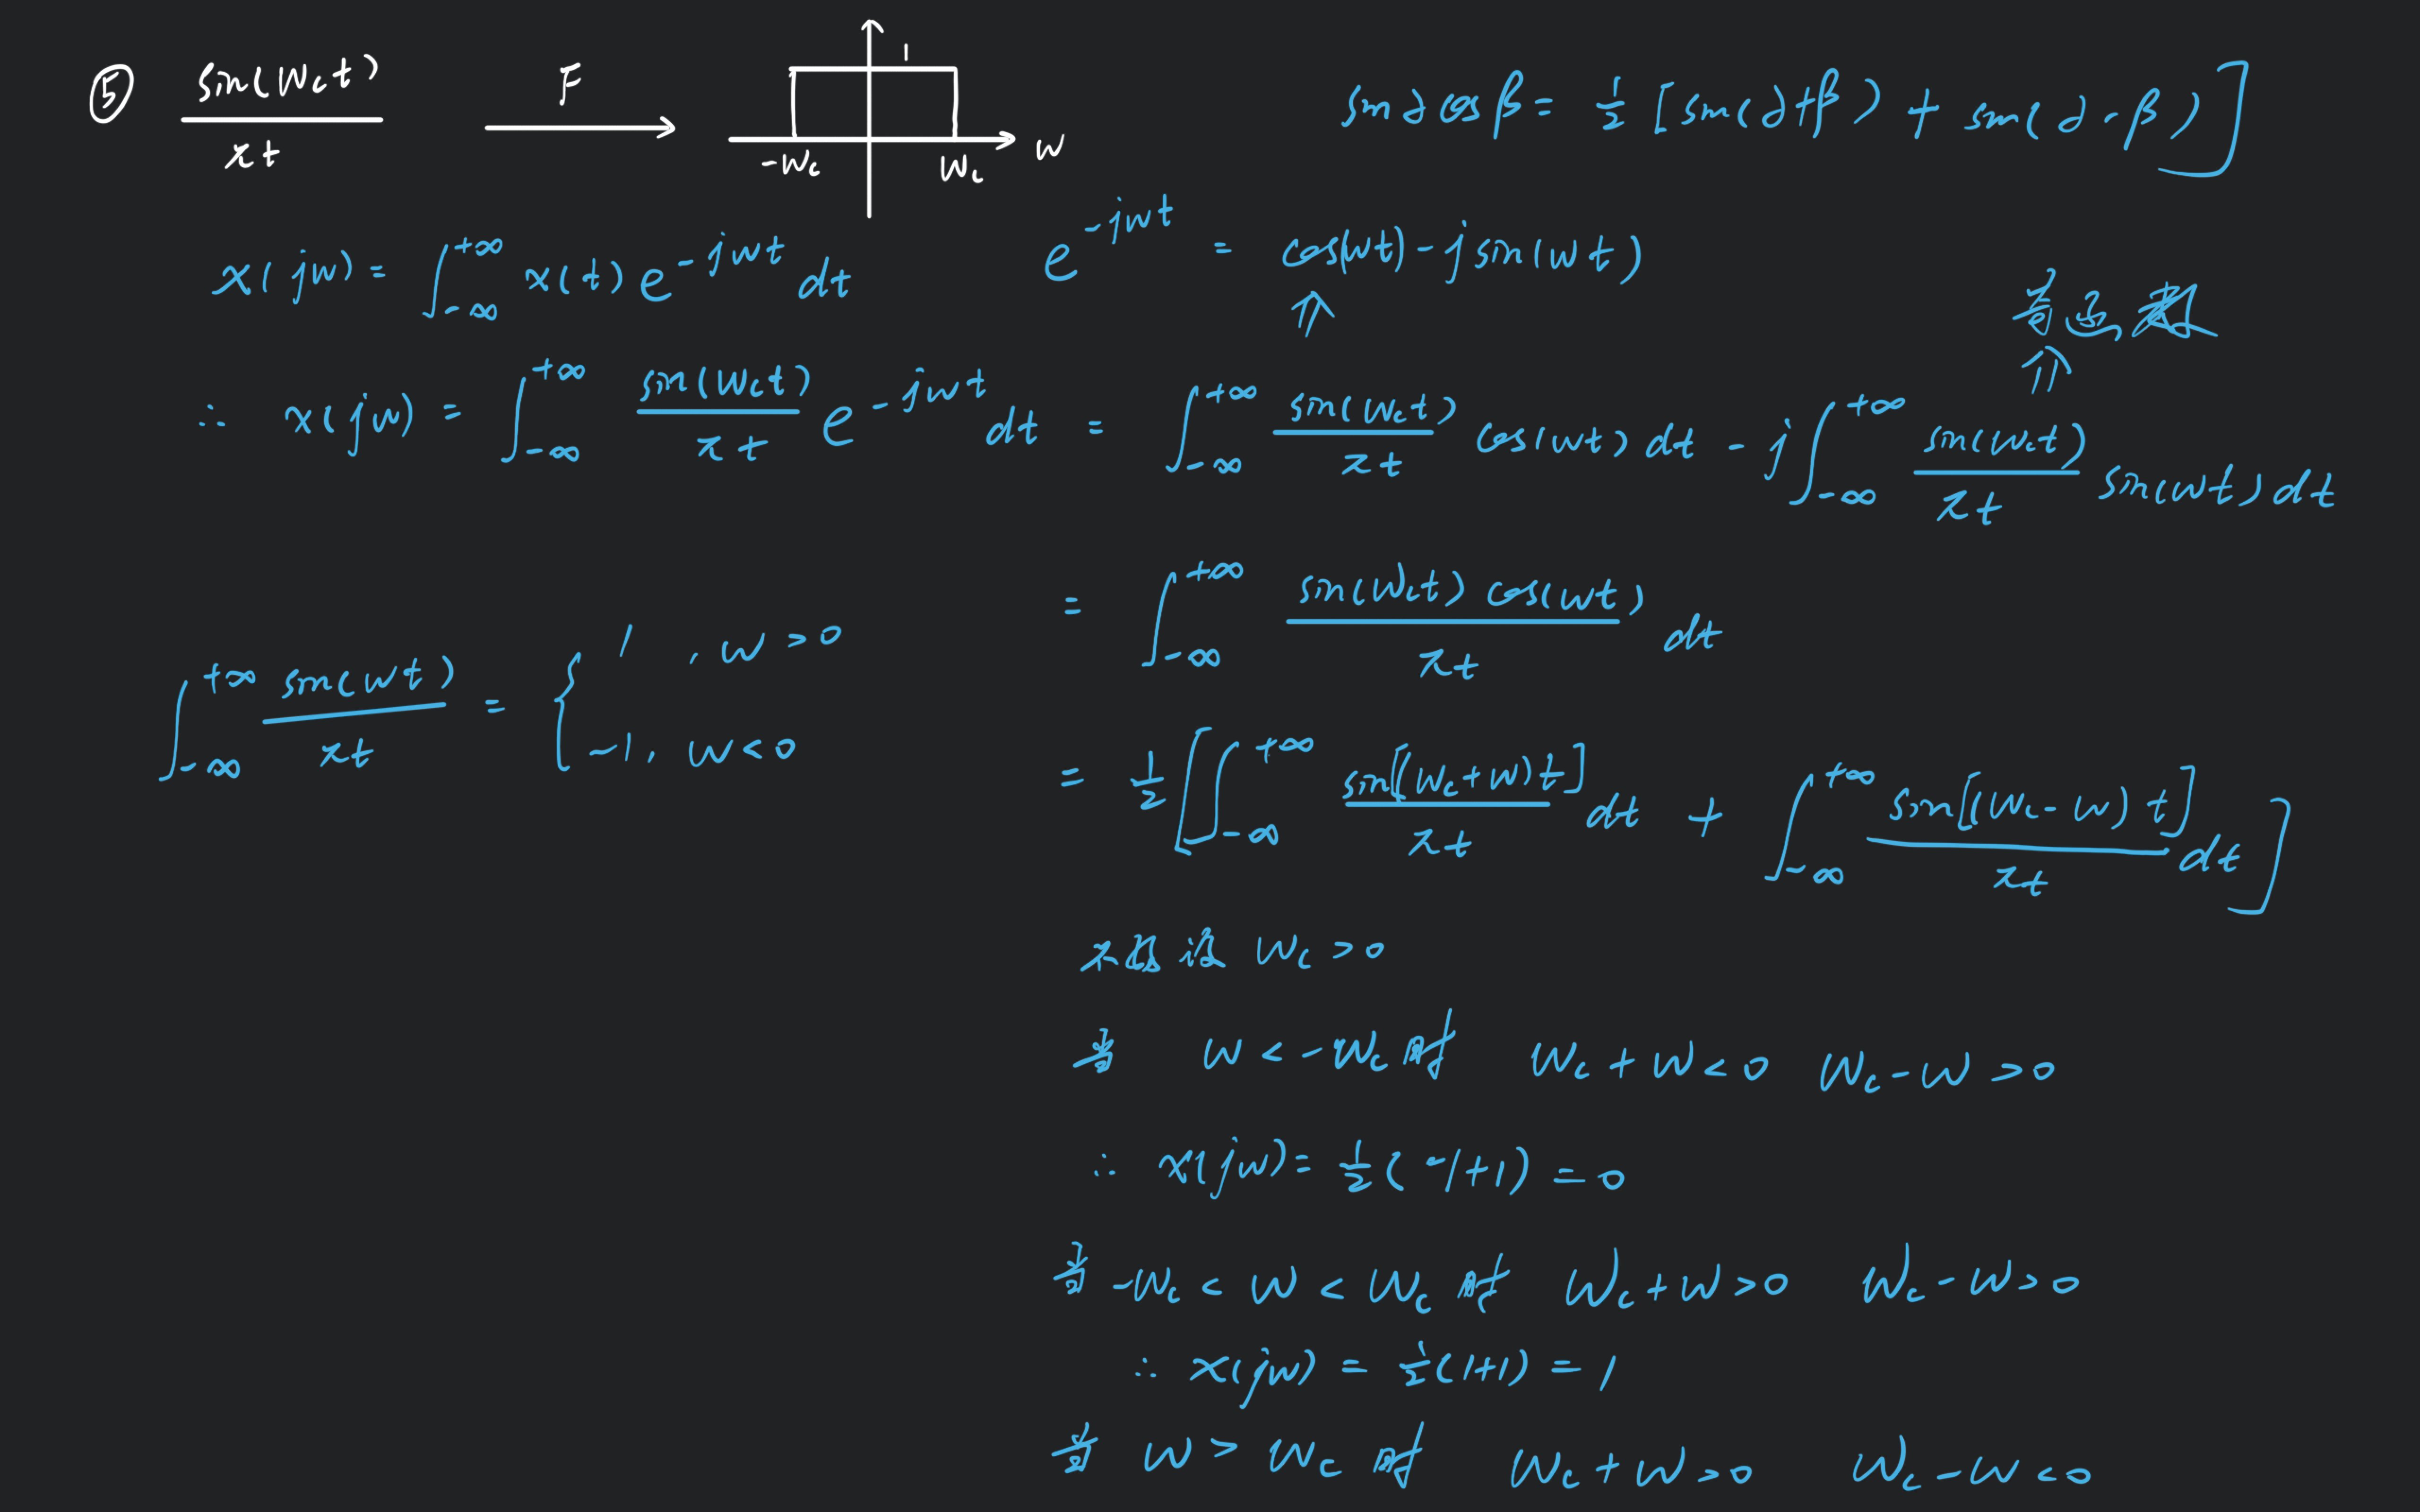 ⑤ sin(Wct)/πt F→ 1 -Wc Wc W
sin∂cosβ = 1/2[sin(∂+β) + sin(∂-β)]
x(jw) = ∫_{-∞}^{+∞} x(t)e^{-jwt} dt
e^{-jwt} = cos(wt) - jsin(wt)
⇑
奇函数
⇑
∴ x(jw) = ∫_{-∞}^{+∞} sin(Wct)/πt e^{-jwt} dt = ∫_{-∞}^{+∞} sin(Wct)/πt cos(wt) dt - j∫_{-∞}^{+∞} sin(Wct)/πt sin(wt) dt
= ∫_{-∞}^{+∞} sin(Wct)cos(wt)/πt dt
∫_{-∞}^{+∞} sin(wt)/πt = { 1, w>0
-1, w<0
= 1/2[∫_{-∞}^{+∞} sin[(Wc+W)t]/πt dt + ∫_{-∞}^{+∞} sin[(Wc-W)t]/πt dt]
不妨设 Wc>0
当 W<-Wc时 Wc+W<0 Wc-W>0
∴ x(jw) = 1/2(-1+1) = 0
当 -Wc<W<Wc时 Wc+W>0 Wc-W>0
∴ x(jw) = 1/2(1+1) = 1
当 W>Wc时 Wc+W>0 Wc-W<0